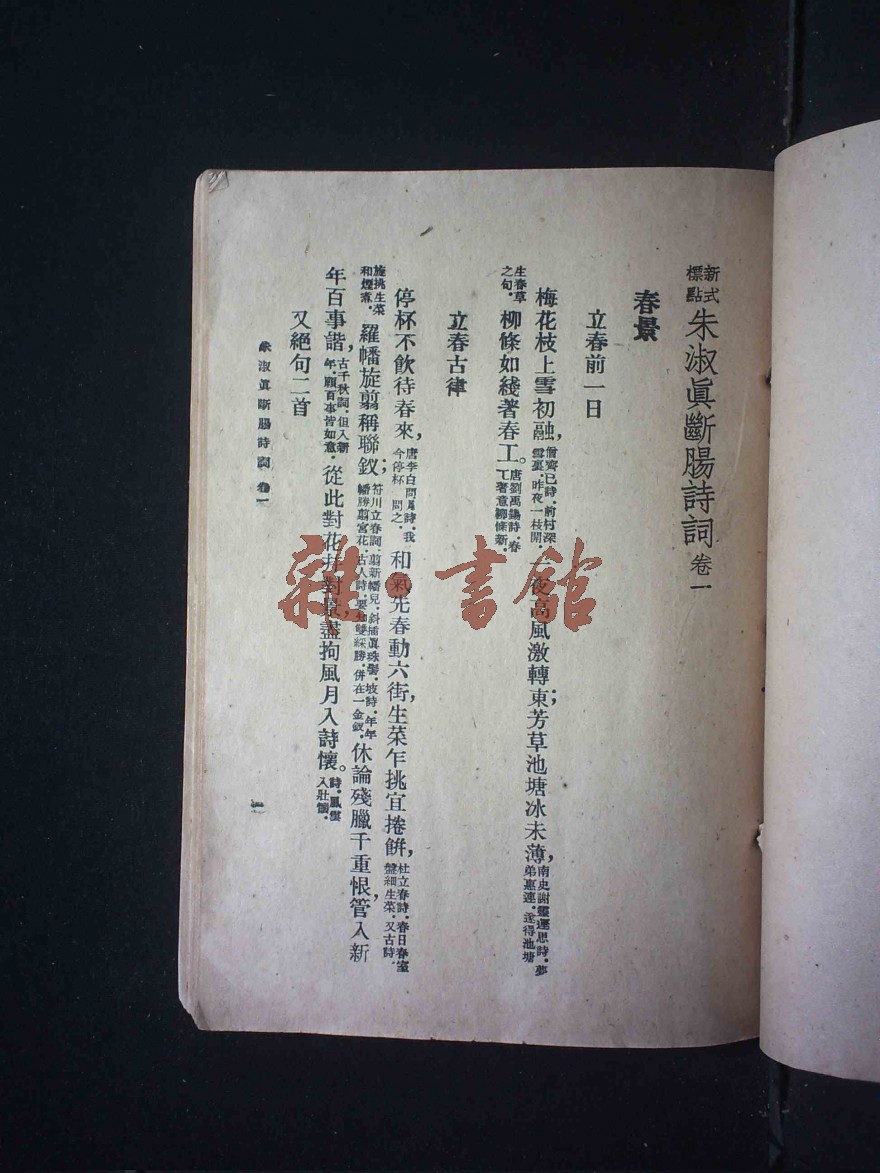 新式標點 朱淑眞斷腸詩詞 卷一
春景
立春前一日
梅花枝上雪初融，僧齊己詩．前村深雪裏．昨夜一枝開．一夜高風激轉東；芳草池塘冰未薄，南史謝靈運思詩．夢弟惠連．遂得池塘
生春草之句．柳條如綫著春工。唐劉禹錫詩．春工著意柳條新．
立春古律
停杯不飲待春來，唐李白問月詩．我今停杯一問之．和氣先春動六街，生菜乍挑宜捲餅，杜立春詩．春日春盤細生菜．又古詩．
旋挑生菜和煙煮．羅幡旋翦稱聯釵；翦新幡兒．斜插眞珠髻．坡詩．年年幡勝翦宮花．古人詩．雙綵勝．併在一金釵．休論殘臘千重恨，管入新
年百事諧，古千秋詞．但入新年．願百事皆如意．從此對花幷對景，盡拘風月入詩懷。詩．風雲入壯懷．
又絕句二首
朱淑眞斷腸詩詞 卷一
雜·書館